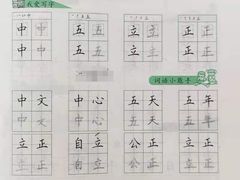 我爱写字
中 中 五 五 立 立 正 正
中 中 五 五 立 立 正 正
词语小能手
中 文 中 心 五 天 五 年
中 文 中 心 五 天 五 年
立 正 自 立 公 正 正
立 正 自 立 公 正 正